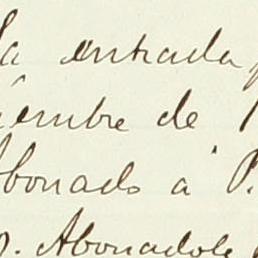 la entrada
iembre de
Abonado a P.
Abonadole